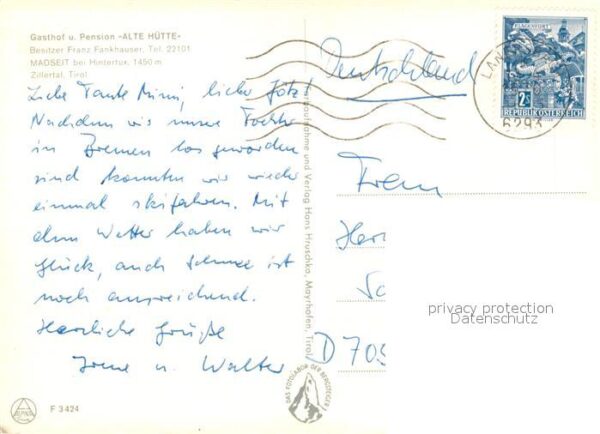 Gasthof u. Pension »ALTE HÜTTE«
Besitzer Franz Fankhauser, Tel. 22101
MADSEIT bei Hintertux, 1450 m
Zillertal, Tirol
Liebe Tante Mimi, lieber Götz!
Nachdem wir unsere Tochter
in Bremen los geworden
sind konnten wir wieder
einmal skifahren. Mit
dem Wetter haben wir
Glück, auch Schnee ist
noch ausreichend.
Herzliche Grüße
Irene u. Walter
F 3424
ALPINA
Verlag Hans Hruschka, Mayrhofen, Tirol
DAS FOTOLABOR DER BERGSTEIGER
Deutschland
KLAGENFURT
2 S
REPUBLIK ÖSTERREICH
6293
Frau
Her
Sc
D 709
privacy protection
Datenschutz